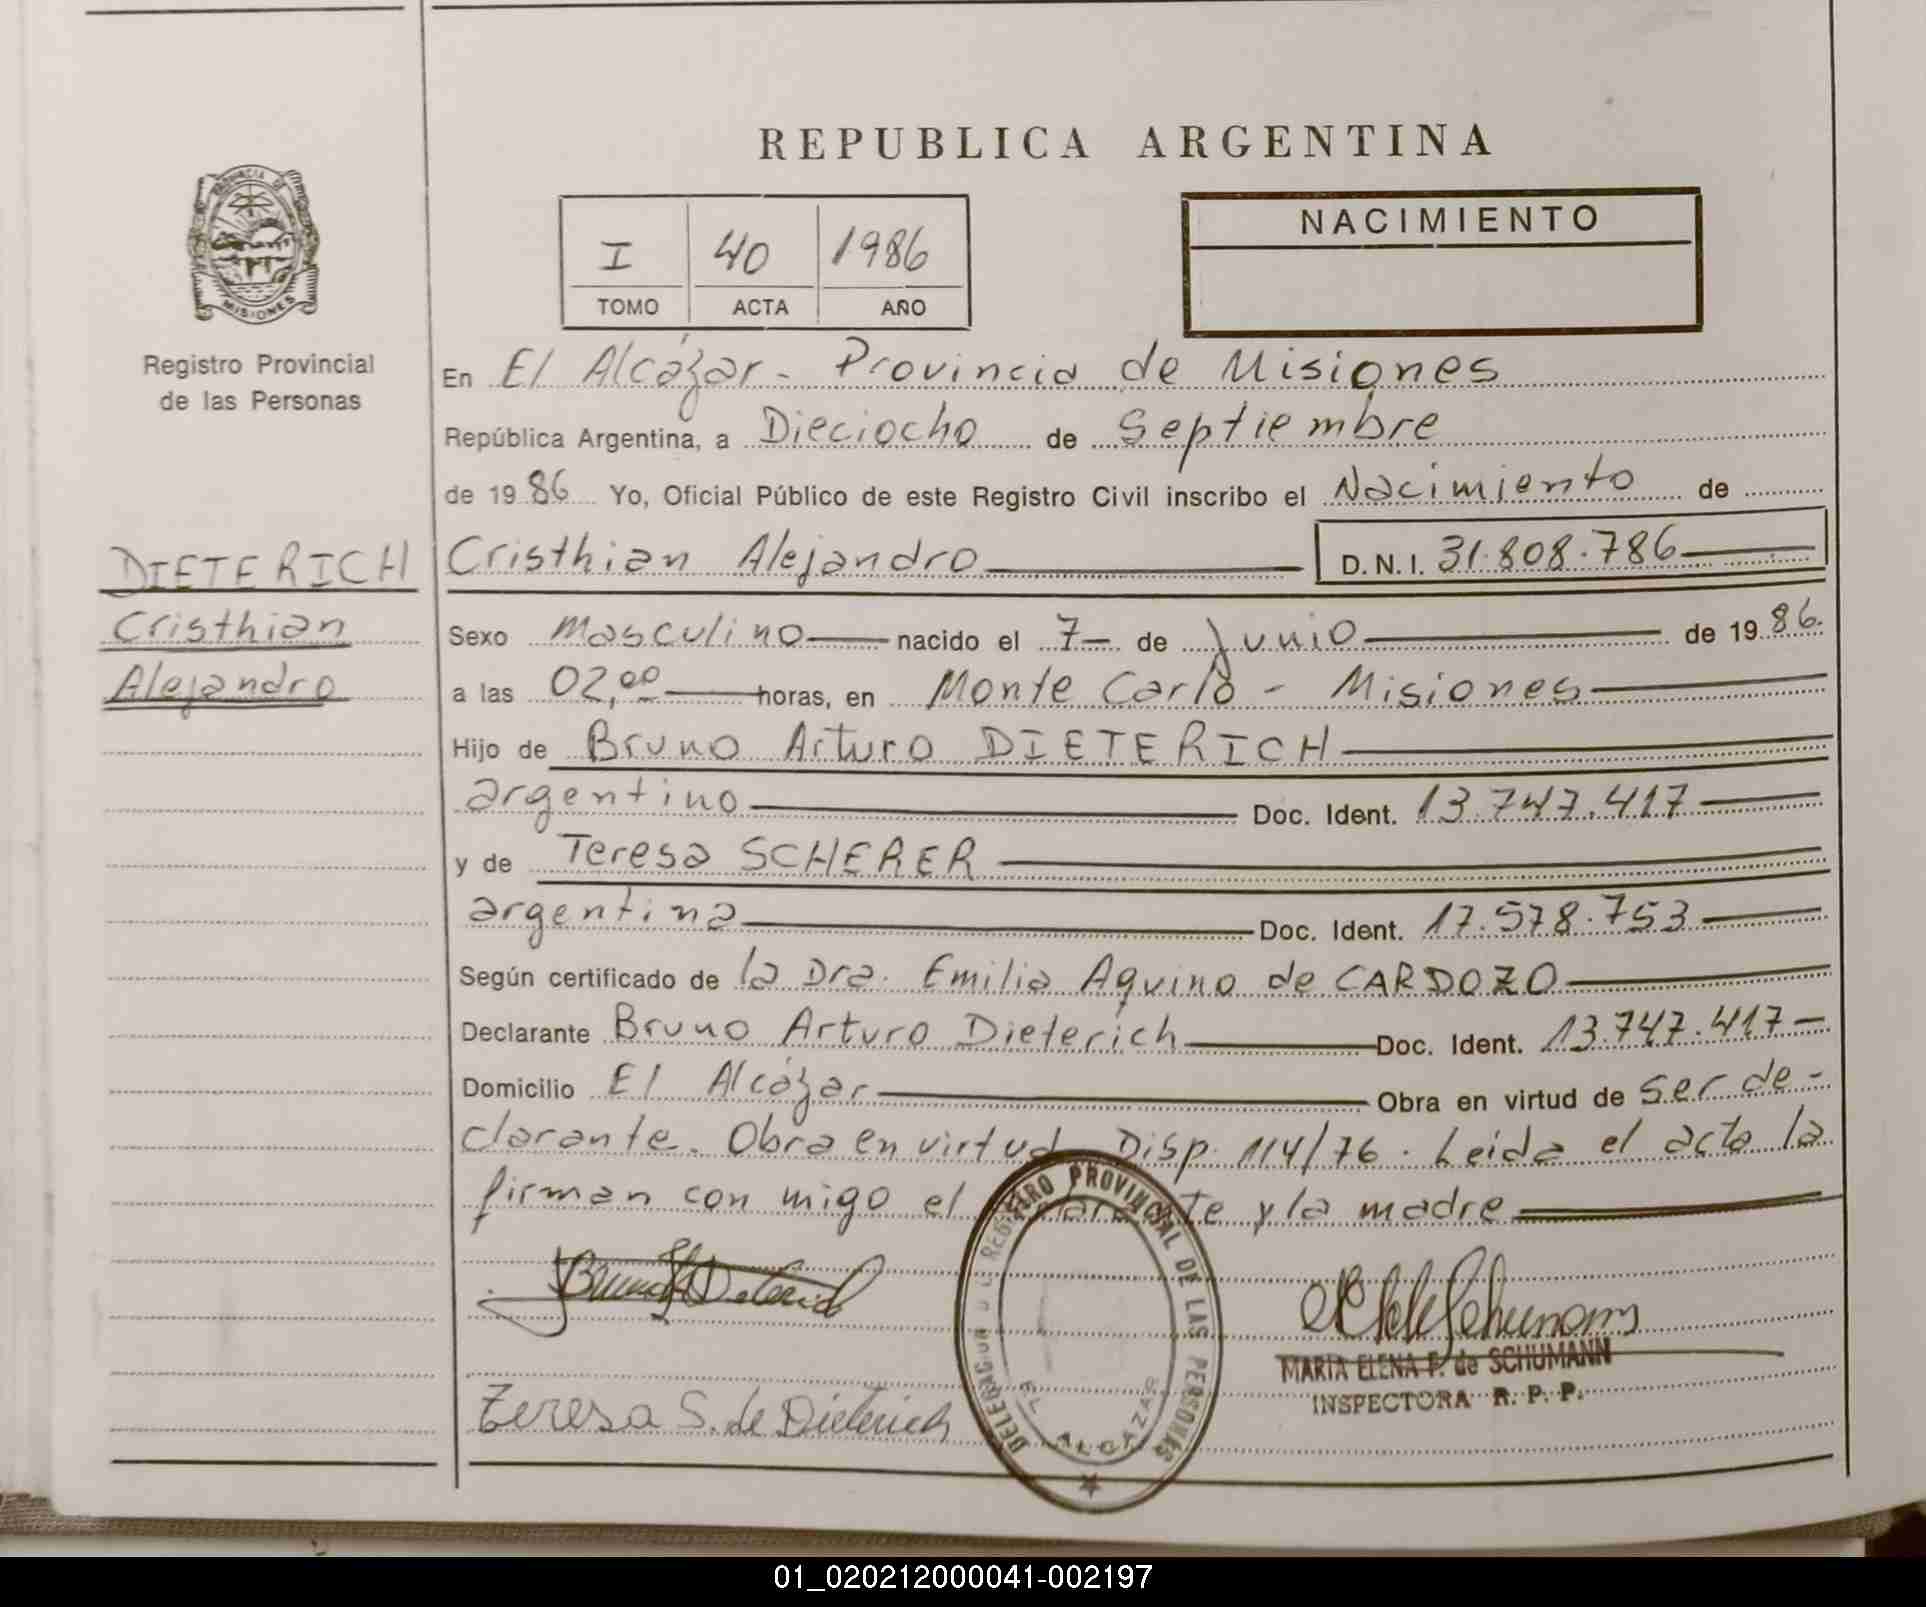 REPUBLICA ARGENTINA
PROVINCIA DE
MISIONES
Registro Provincial
de las Personas
I 40 1986
TOMO ACTA AÑO
NACIMIENTO
En El Alcázar - Provincia de Misiones
República Argentina, a Dieciocho de Septiembre
de 1986 Yo, Oficial Público de este Registro Civil inscribo el Nacimiento de
DIETERICH
Cristhian
Alejandro
Cristhian Alejandro D.N.I. 31.808.786
Sexo Masculino nacido el 7 de Junio de 1986.
a las 02,00 horas, en Monte Carlo - Misiones
Hijo de Bruno Arturo DIETERICH
argentino Doc. Ident. 13.747.417
y de Teresa SCHERER
argentina Doc. Ident. 17.578.753
Según certificado de la Dra. Emilia Aquino de CARDOZO
Declarante Bruno Arturo Dieterich Doc. Ident. 13.747.417
Domicilio El Alcázar Obra en virtud de ser de-
clarante. Obra en virtud Disp. 114/76. Leida el acta la
firman con migo el y la madre
REGISTRO PROVINCIAL DE LAS PERSONAS
EL ALCAZAR
MARIA ELENA F. de SCHUMANN
INSPECTORA R. P. P.
Teresa S. de Dieterich
01_020212000041-002197